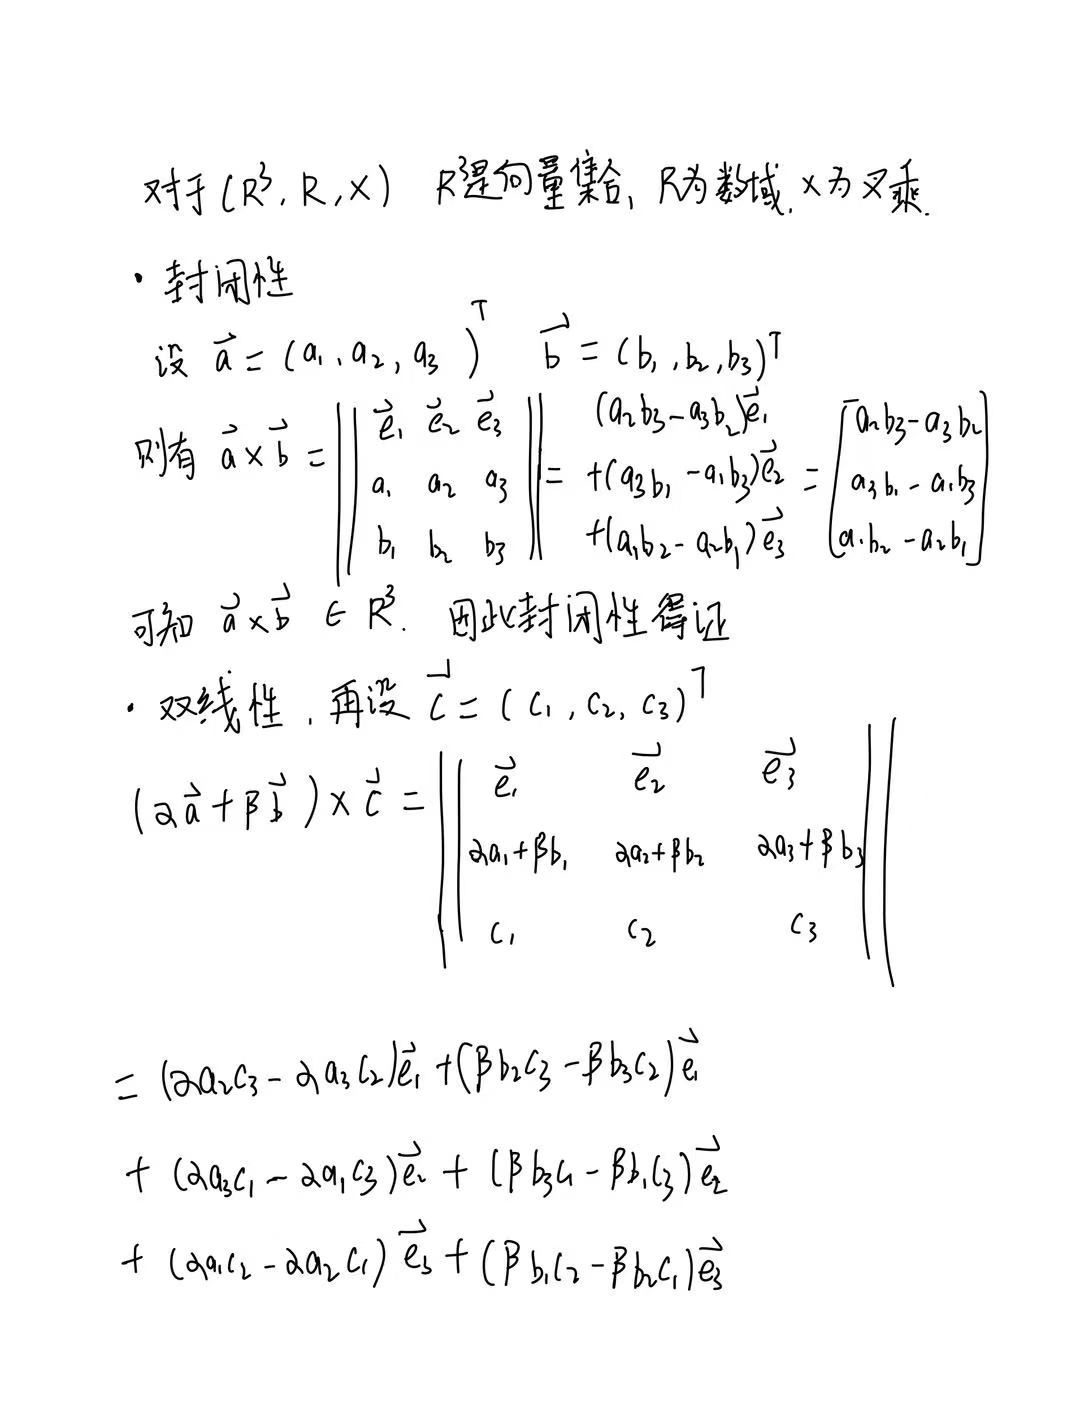 对于(R³,R,×) R³是向量集合, R为数域, ×为叉乘.
· 封闭性
设 a⃗ = (a₁, a₂, a₃)ᵀ b⃗ = (b₁, b₂, b₃)ᵀ
则有 a⃗×b⃗ = || e⃗₁ e⃗₂ e⃗₃ ; a₁ a₂ a₃ ; b₁ b₂ b₃ || = (a₂b₃-a₃b₂)e⃗₁ +(a₃b₁-a₁b₃)e⃗₂ +(a₁b₂-a₂b₁)e⃗₃ = [a₂b₃-a₃b₂ ; a₃b₁-a₁b₃ ; a₁b₂-a₂b₁]
可知 a⃗×b⃗ ∈ R³. 因此封闭性得证
· 双线性, 再设 c⃗ = (c₁, c₂, c₃)ᵀ
(αa⃗+βb⃗)×c⃗ = || e⃗₁ e⃗₂ e⃗₃ ; αa₁+βb₁ αa₂+βb₂ αa₃+βb₃ ; c₁ c₂ c₃ ||
= (αa₂c₃-αa₃c₂)e⃗₁+(βb₂c₃-βb₃c₂)e⃗₁
+ (αa₃c₁-αa₁c₃)e⃗₂+(βb₃c₁-βb₁c₃)e⃗₂
+ (αa₁c₂-αa₂c₁)e⃗₃+(βb₁c₂-βb₂c₁)e⃗₃